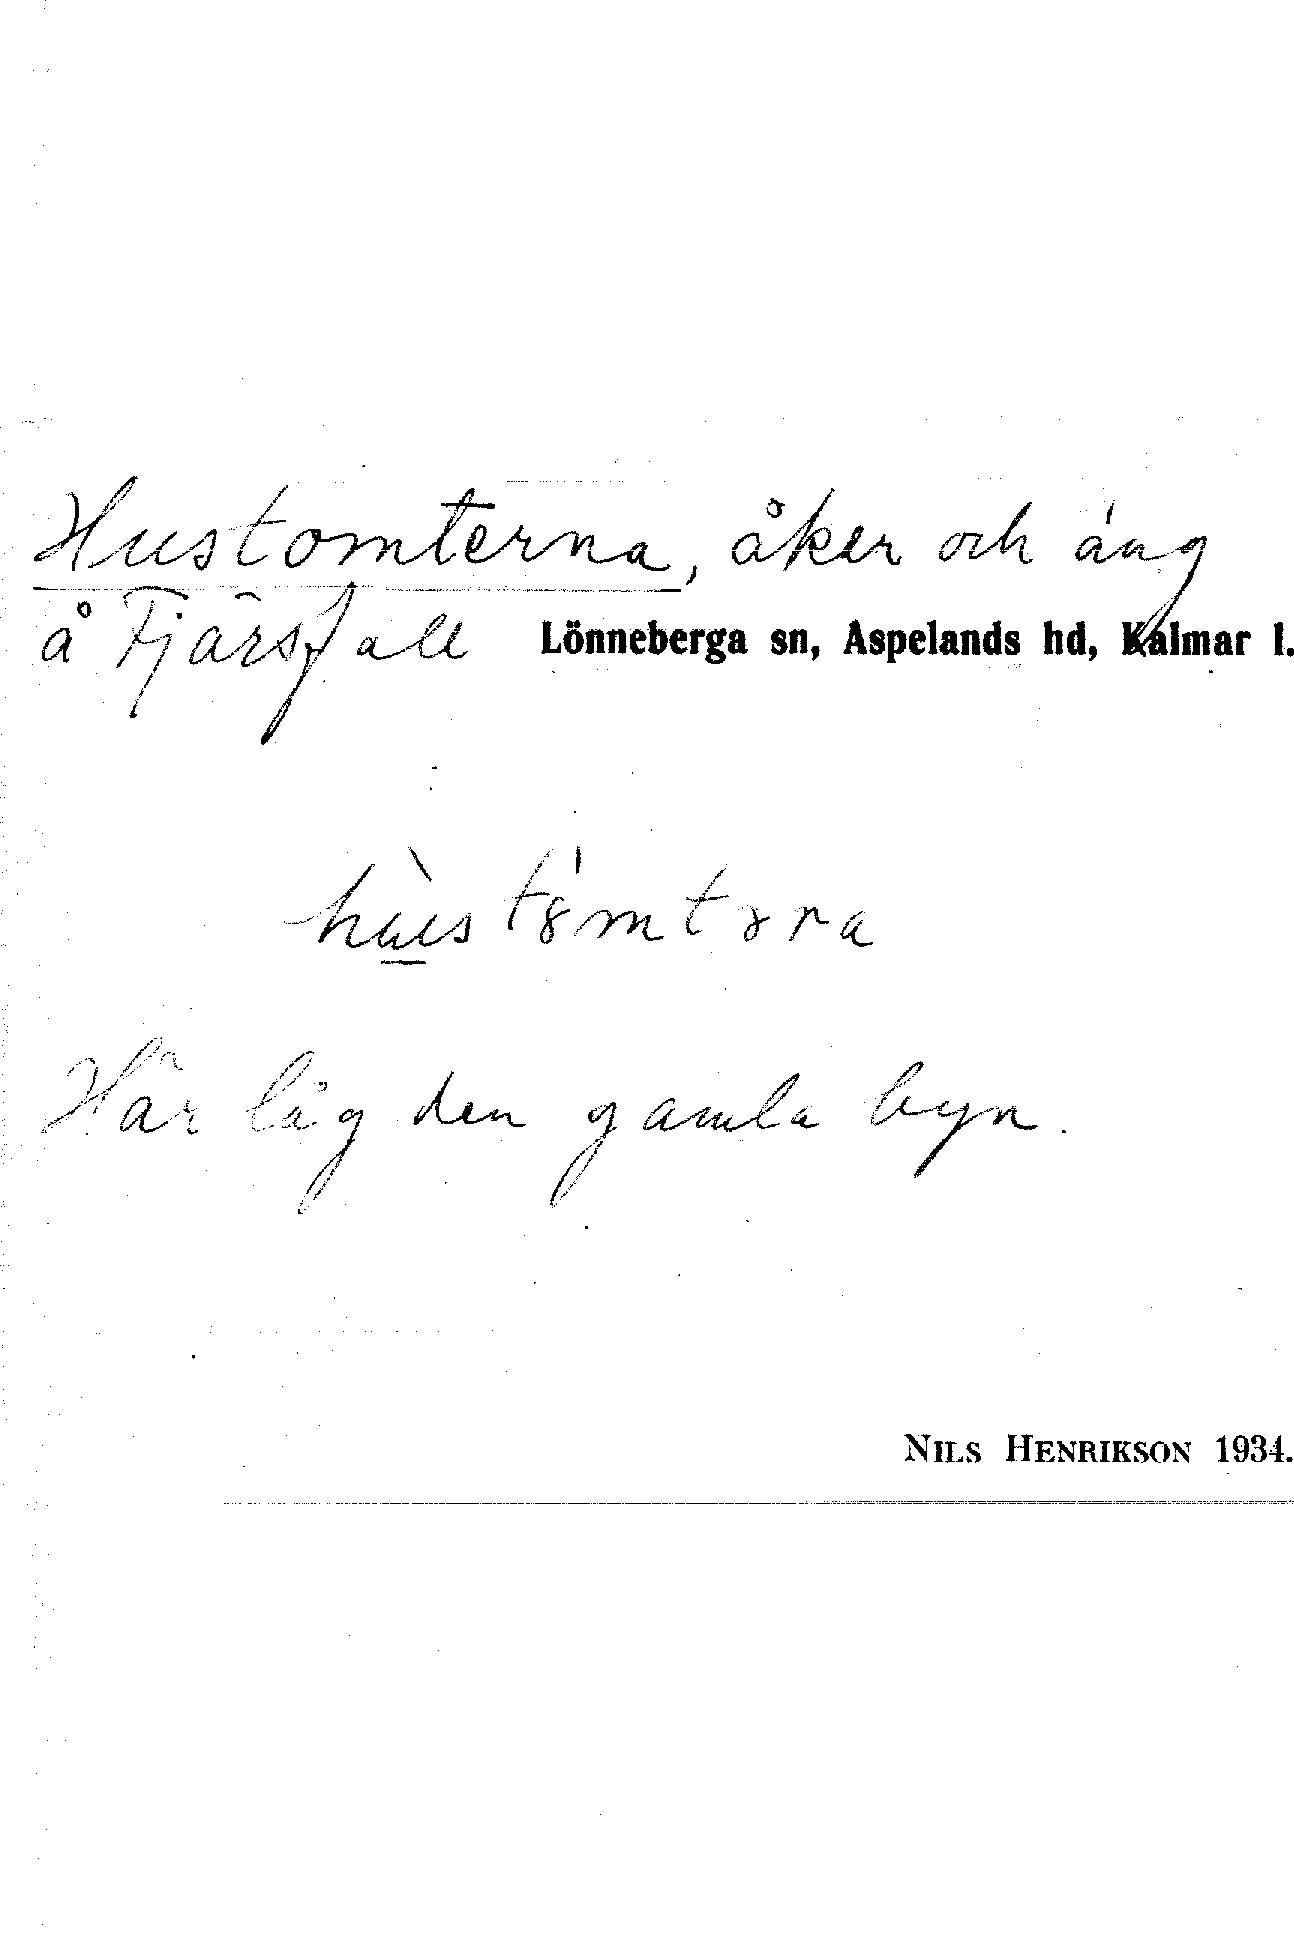 Hustomterna, åker och äng
å Fjärsfall Lönneberga sn, Aspelands hd, Kalmar l.
Här låg den gamla byn.
NILS HENRIKSON 1934.